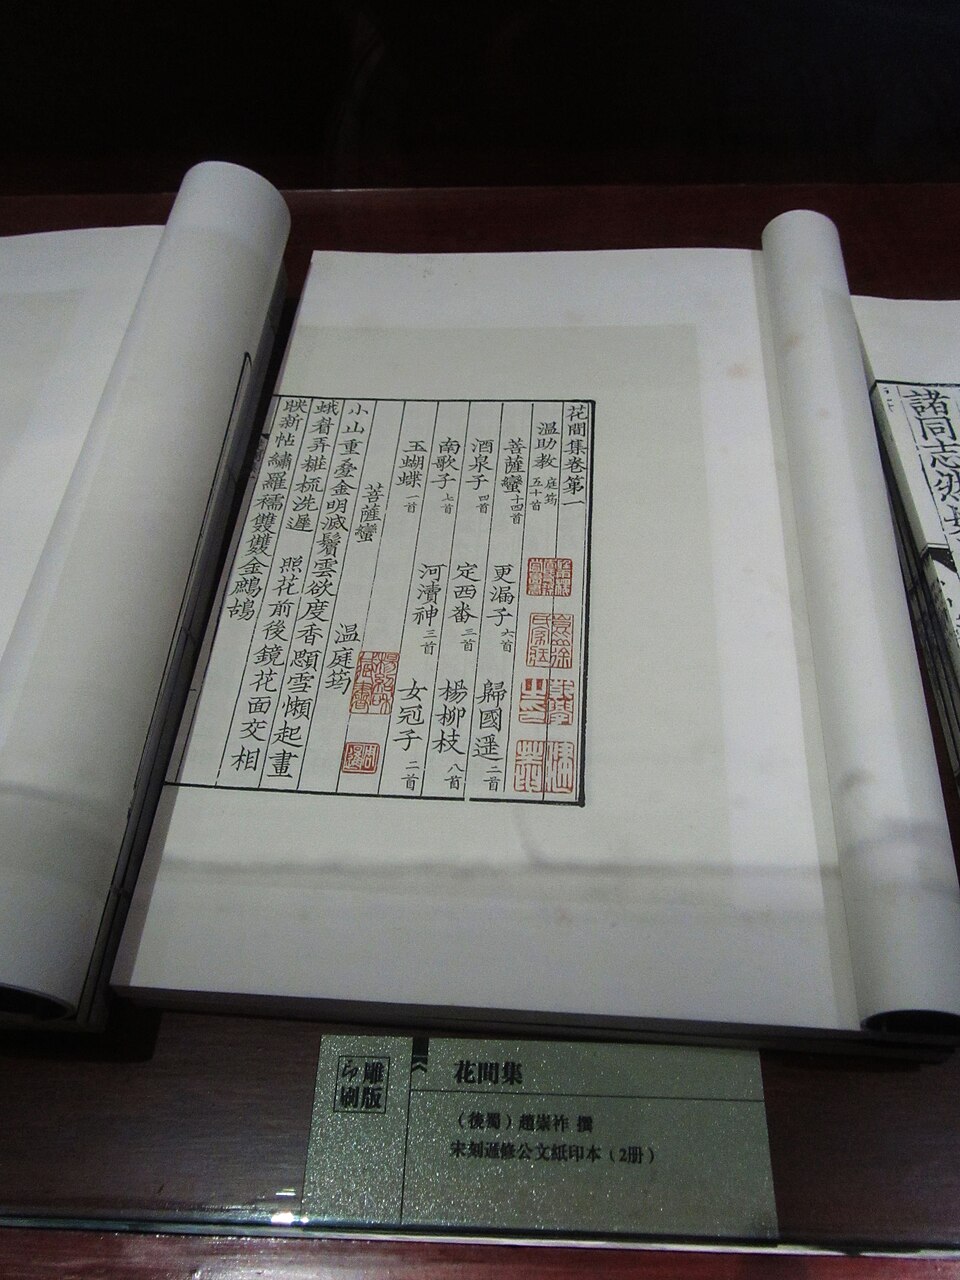 花間集卷第一
温助教 庭筠 五十首
菩薩蠻 十四首 更漏子 六首 歸國遥 二首
酒泉子 四首 定西番 三首 楊柳枝 八首
南歌子 七首 河瀆神 三首 女冠子 二首
玉蝴蝶 一首
菩薩蠻 温庭筠
小山重疊金明滅鬢雲欲度香顋雪懶起畫
蛾眉弄粧梳洗遲 照花前後鏡花面交相
映新帖繡羅襦雙雙金鷓鴣
諸同志
雕版
印刷
花間集
（後蜀）趙崇祚 撰
宋刻遞修公文紙印本（2册）